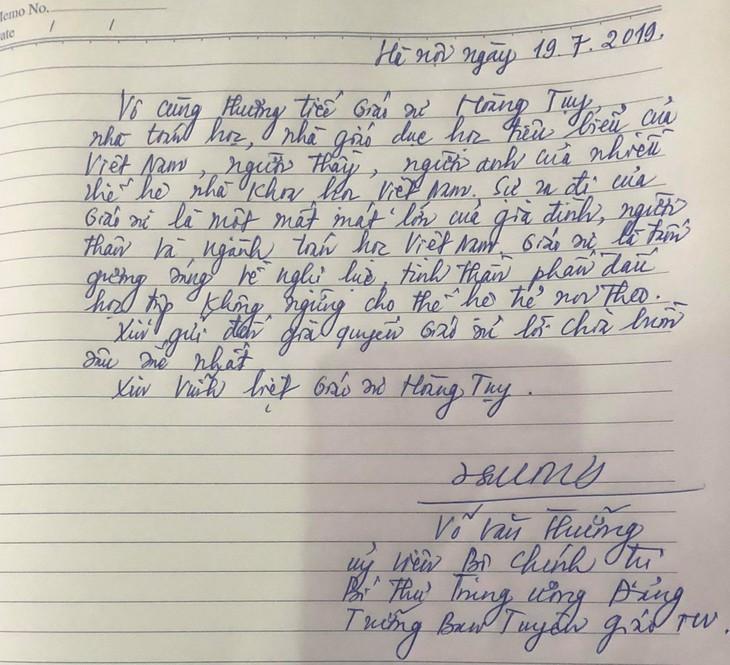 Memo No.
ate / /
Hà nội ngày 19.7.2019.
Vô cùng thương tiếc Giáo sư Hoàng Tụy,
nhà toán học, nhà giáo dục học tiêu biểu của
Việt Nam, người thầy, người anh của nhiều
thế hệ nhà khoa học Việt Nam. Sự ra đi của
Giáo sư là một mất mát lớn của gia đình, người
thân và ngành toán học Việt Nam. Giáo sư là tấm
gương sáng về nghị lực, tinh thần phấn đấu
học tập không ngừng cho thế hệ trẻ noi theo.
Xin gửi đến gia quyến Giáo sư lời chia buồn
sâu sắc nhất
Xin vĩnh biệt Giáo sư Hoàng Tụy.
Võ Văn Thưởng
Uỷ viên Bộ Chính trị
Bí thư Trung ương Đảng
Trưởng Ban Tuyên giáo TW.